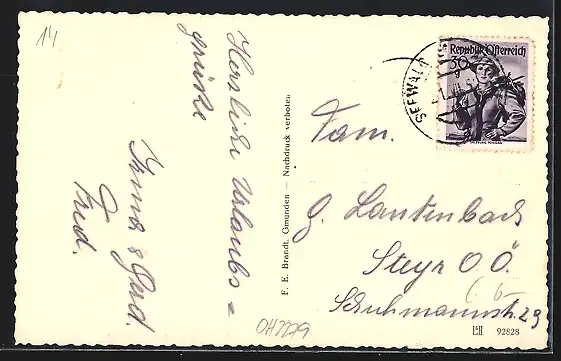 14
Herzliche Urlaubs =
grüße
Irma & Gerd.
Fred.
F. E. Brandt, Gmunden — Nachdruck verboten
OH7779
Republik Österreich
30
g
SEEWALCHEN
Fam.
G. Lautenbach
Steyr O.Ö.
Schuhmannstr. 29
92828